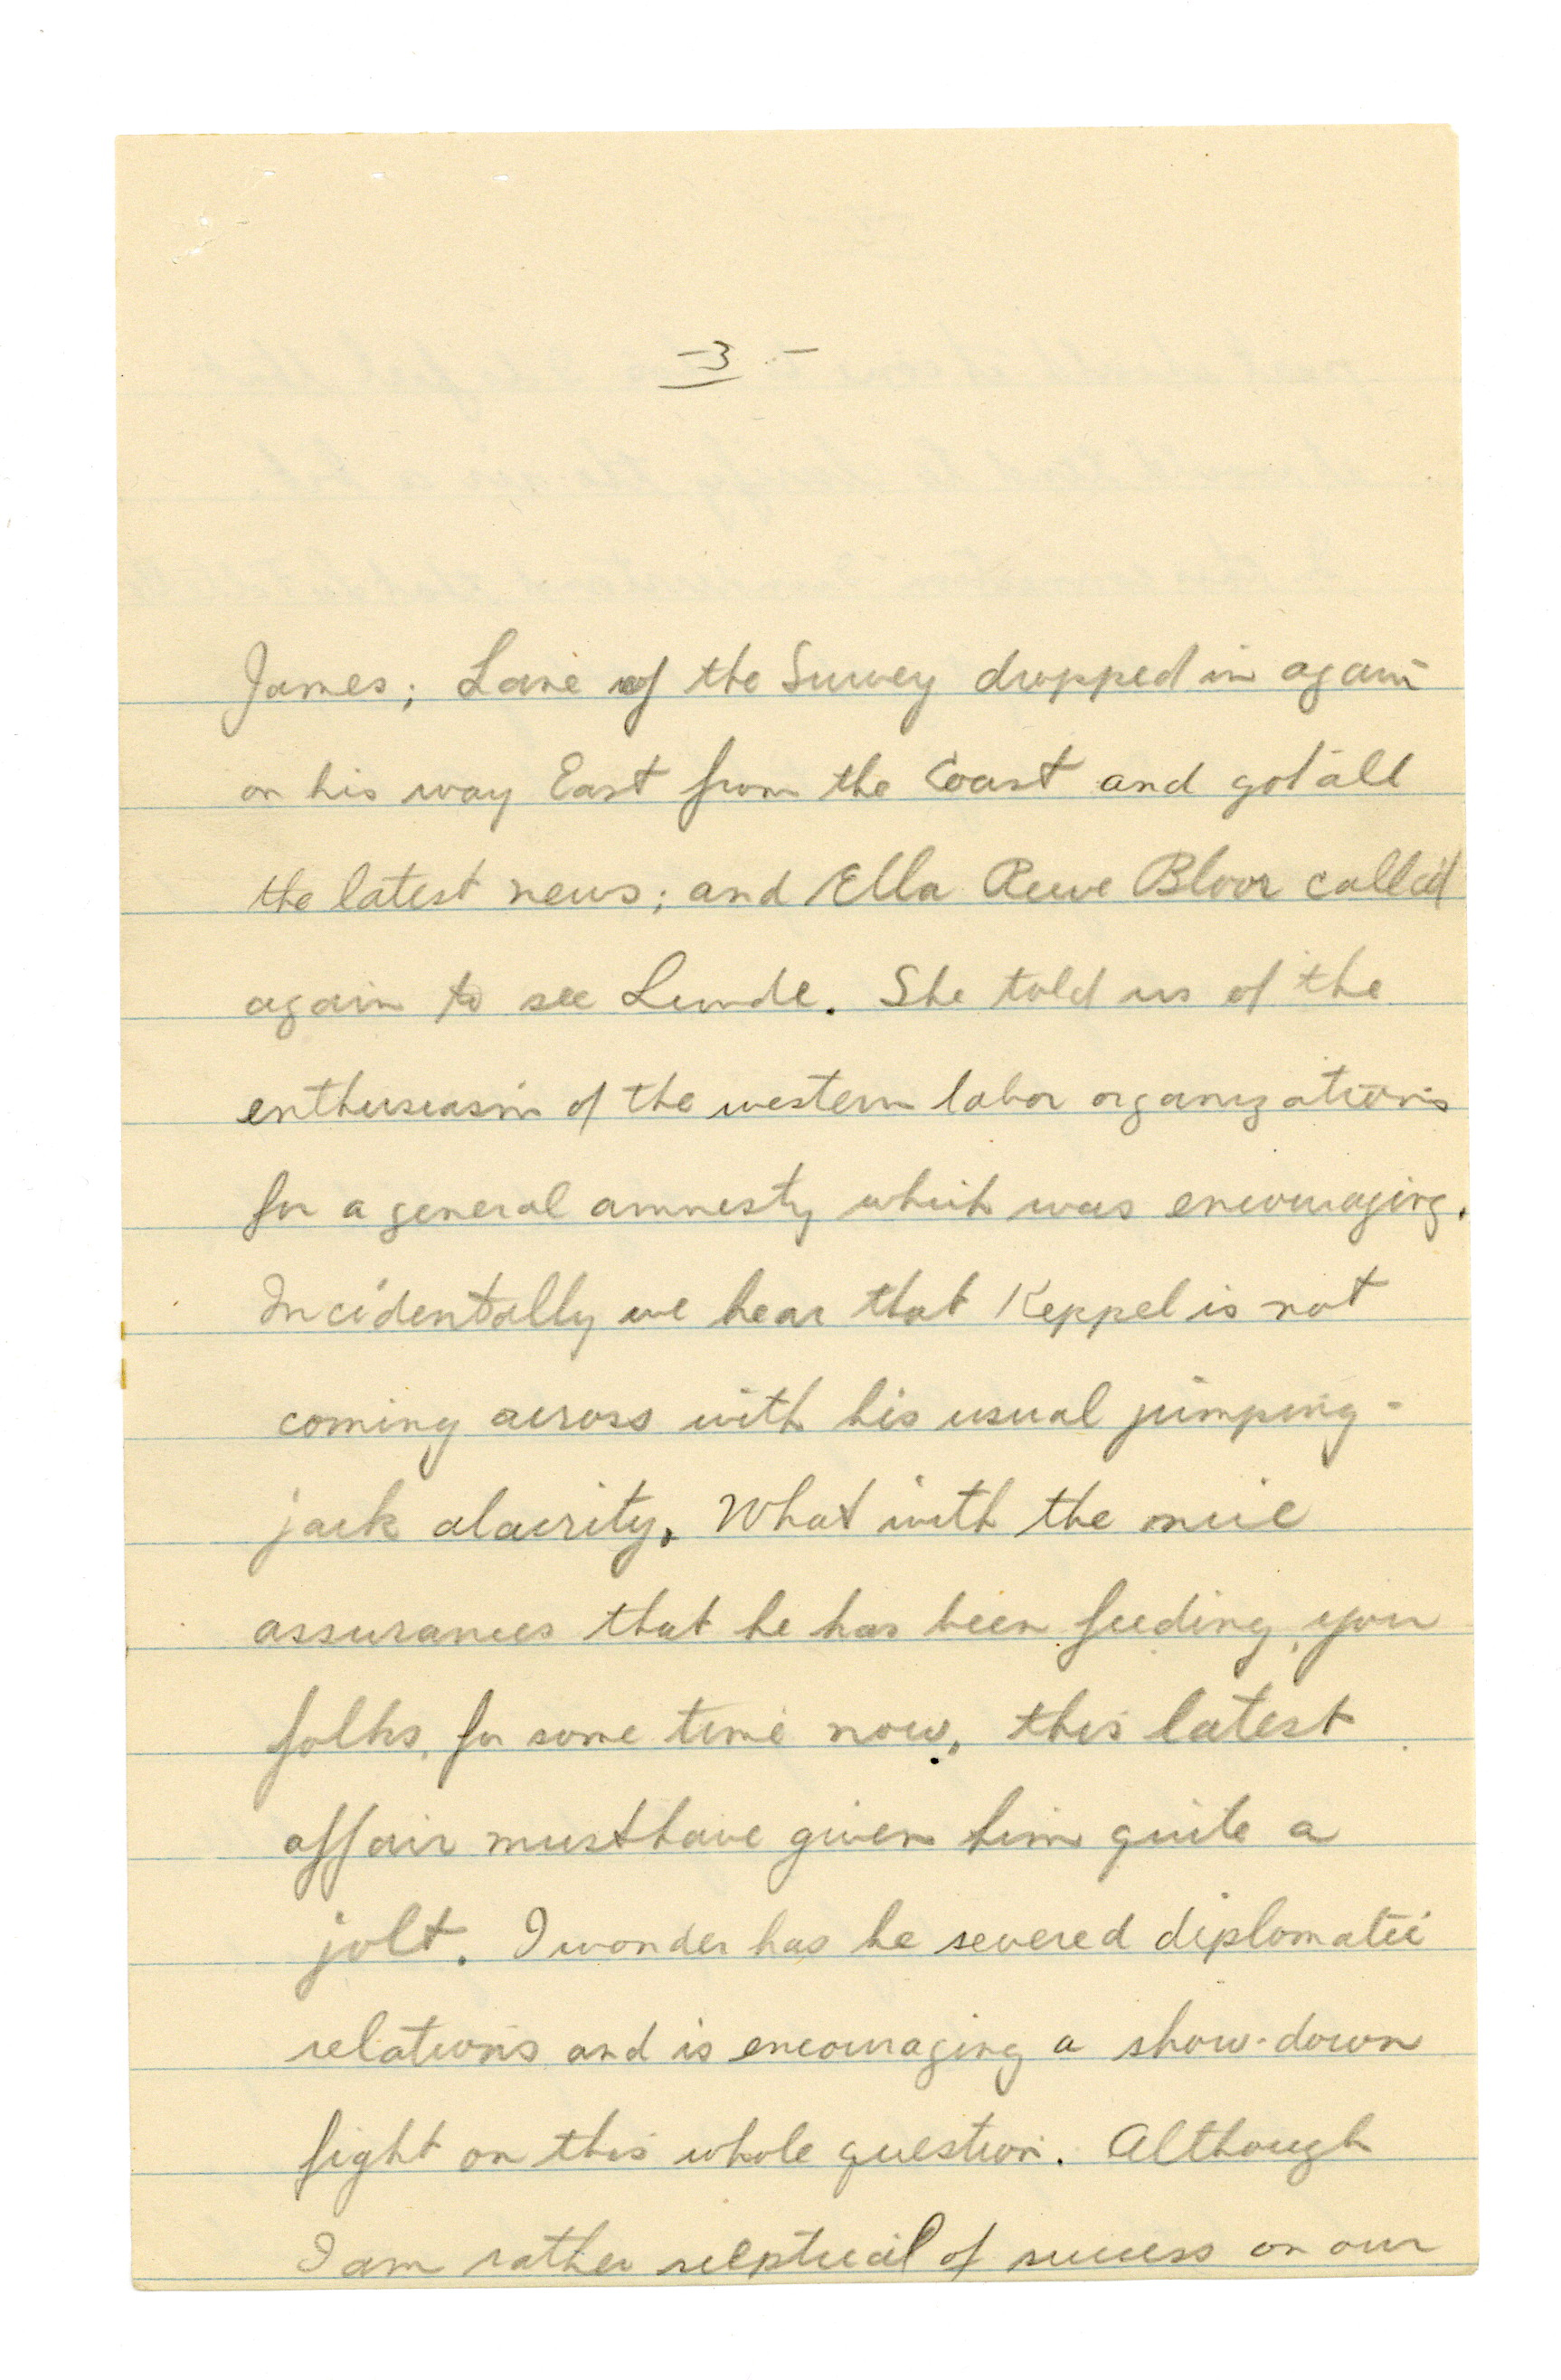 -3-
James; Lane of the Survey dropped in again
on his way East from the Coast and got all
the latest news; and Ella Reeve Bloor called
again to see Lunde. She told us of the
enthusiasm of the western labor organizations
for a general amnesty which was encouraging.
Incidentally we hear that Keppel is not
coming across with his usual jumping-
jack alacrity. What with the nice
assurances that he has been feeding you
folks, for some time now, this latest
affair must have given him quite a
jolt. I wonder has he severed diplomatic
relations and is encouraging a show-down
fight on this whole question. Although
I am rather sceptical of success on our